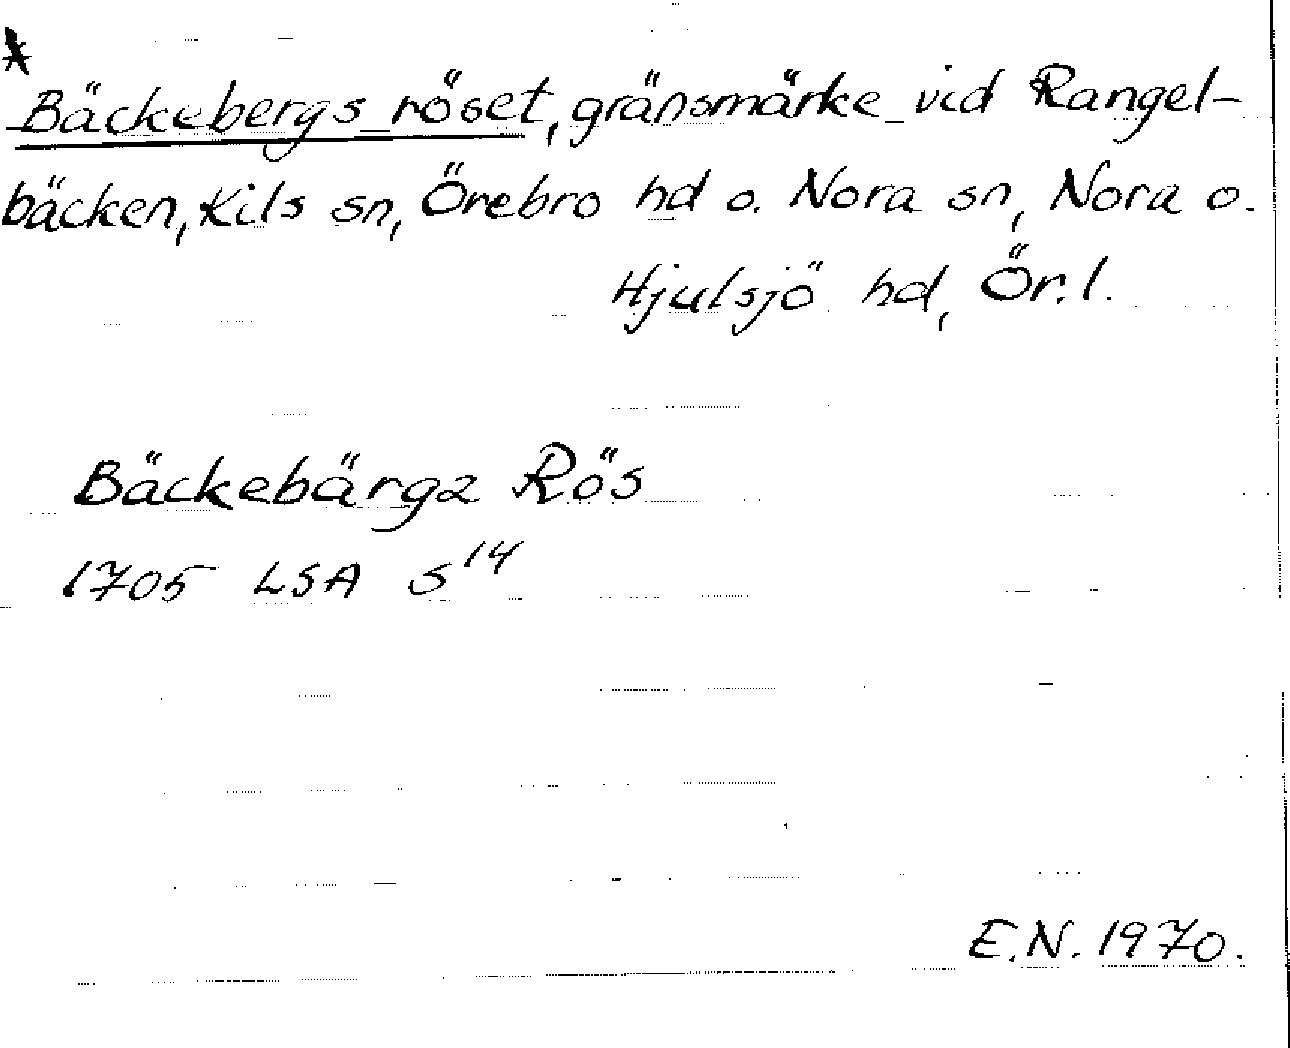 *
Bäckebergs röset, gränsmärke vid Rangel-
bäcken, Kils sn, Örebro hd o. Nora sn, Nora o.
Hjulsjö hd, Ör. l.
Bäckebärgz Rös
1705 LSA S¹⁴
E.N. 1970.